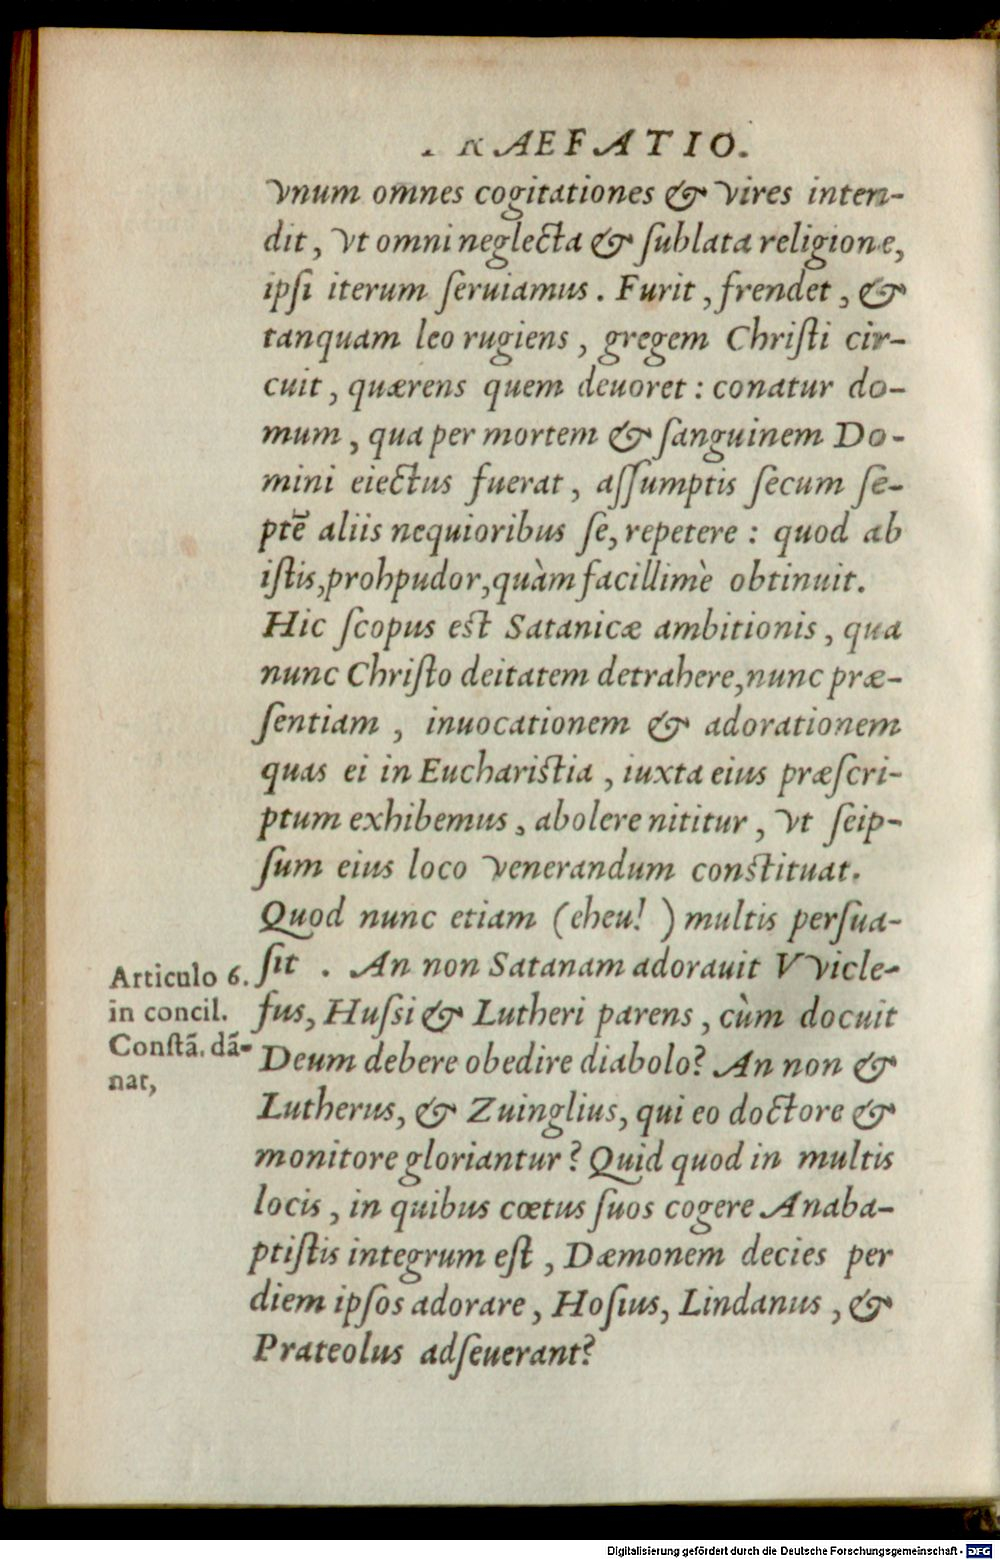 PRAEFATIO.
vnum omnes cogitationes & vires inten-
dit, vt omni neglecta & ſublata religione,
ipſi iterum ſeruiamus. Furit, frendet, &
tanquam leo rugiens, gregem Chriſti cir-
cuit, quærens quem deuoret: conatur do-
mum, qua per mortem & ſanguinem Do-
mini eiectus fuerat, aſſumptis ſecum ſe-
ptē aliis nequioribus ſe, repetere: quod ab
iſtis, proh pudor, quàm facillimè obtinuit.
Hic ſcopus est Satanicæ ambitionis, qua
nunc Chriſto deitatem detrahere, nunc præ-
ſentiam, inuocationem & adorationem
quas ei in Eucharistia, iuxta eius præſcri-
ptum exhibemus, abolere nititur, vt ſeip-
ſum eius loco venerandum constituat.
Quod nunc etiam (eheu!) multis perſua-
ſit. An non Satanam adorauit Vvicle-
fus, Huſsi & Lutheri parens, cùm docuit
Deum debere obedire diabolo? An non &
Lutherus, & Zuinglius, qui eo doctore &
monitore gloriantur? Quid quod in multis
locis, in quibus cœtus ſuos cogere Anaba-
ptiſtis integrum eſt, Dæmonem decies per
diem ipſos adorare, Hoſius, Lindanus, &
Prateolus adſeuerant?
Articulo 6.
in concil.
Conſtā. dā-
nat,
Digitalisierung gefördert durch die Deutsche Forschungsgemeinschaft - DFG